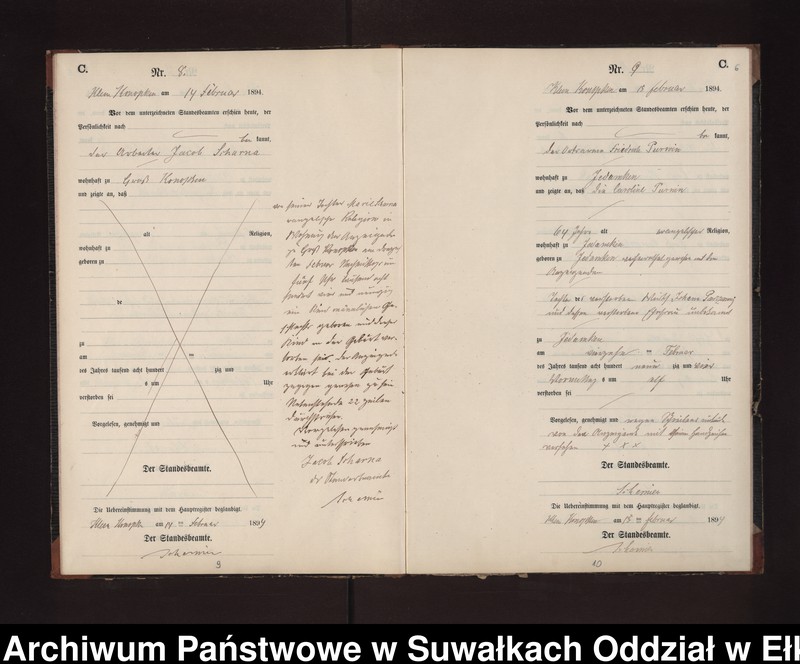 C.
Nr. 8.
Klein Konopken am 14 Februar 1894.
Vor dem unterzeichneten Standesbeamten erschien heute, der
Persönlichkeit nach
bekannt,
der Arbeiter Jacob Scharna
wohnhaft zu Groß Konopken
und zeigte an, daß
alt Religion,
wohnhaft zu
geboren zu
de
zu
am ten
des Jahres tausend acht hundert zig und
s um Uhr
verstorben sei
Vorgelesen, genehmigt und
von seiner Tochter
evangelischer Religion in
zu Groß Konopken am
ten Februar Nachmittags um
fünf Uhr tausend acht
hundert vier und neunzig
ein Kind männlichen Ge-
schlechts geboren und dieses
Kind in der Geburt ver-
storben sei. Der Anzeigende
erklärt bei der Geburt
zugegen gewesen zu sein
Nebenstehende 22 Zeilen
durchstrichen.
Vorgelesen genehmigt
und unterschrieben
Jacob Scharna
der Standesbeamte
Der Standesbeamte.
Die Uebereinstimmung mit dem Hauptregister beglaubigt.
Klein Konopken am 14 ten Februar 1894
Der Standesbeamte.
9
C.
6
Nr. 9
Klein Konopken am 15 Februar 1894.
Vor dem unterzeichneten Standesbeamten erschien heute, der
Persönlichkeit nach
bekannt,
wohnhaft zu Jedamken
und zeigte an, daß die
64 Jahre alt evangelischer Religion,
wohnhaft zu Jedamken
geboren zu Jedamken verheirathet gewesen mit dem
Anzeigenden
Tochter des verstorbenen
und dessen verstorbenen Ehefrau
zu Jedamken
am vierzehn ten Februar
des Jahres tausend acht hundert neun zig und vier
Vormittag s um elf Uhr
verstorben sei
Vorgelesen, genehmigt und wegen
von dem Anzeigenden mit Handzeichen
versehen + x x
Der Standesbeamte.
Die Uebereinstimmung mit dem Hauptregister beglaubigt.
Klein Konopken am 15 ten Februar 1894
Der Standesbeamte.
10
Archiwum Państwowe w Suwałkach Oddział w Ełk